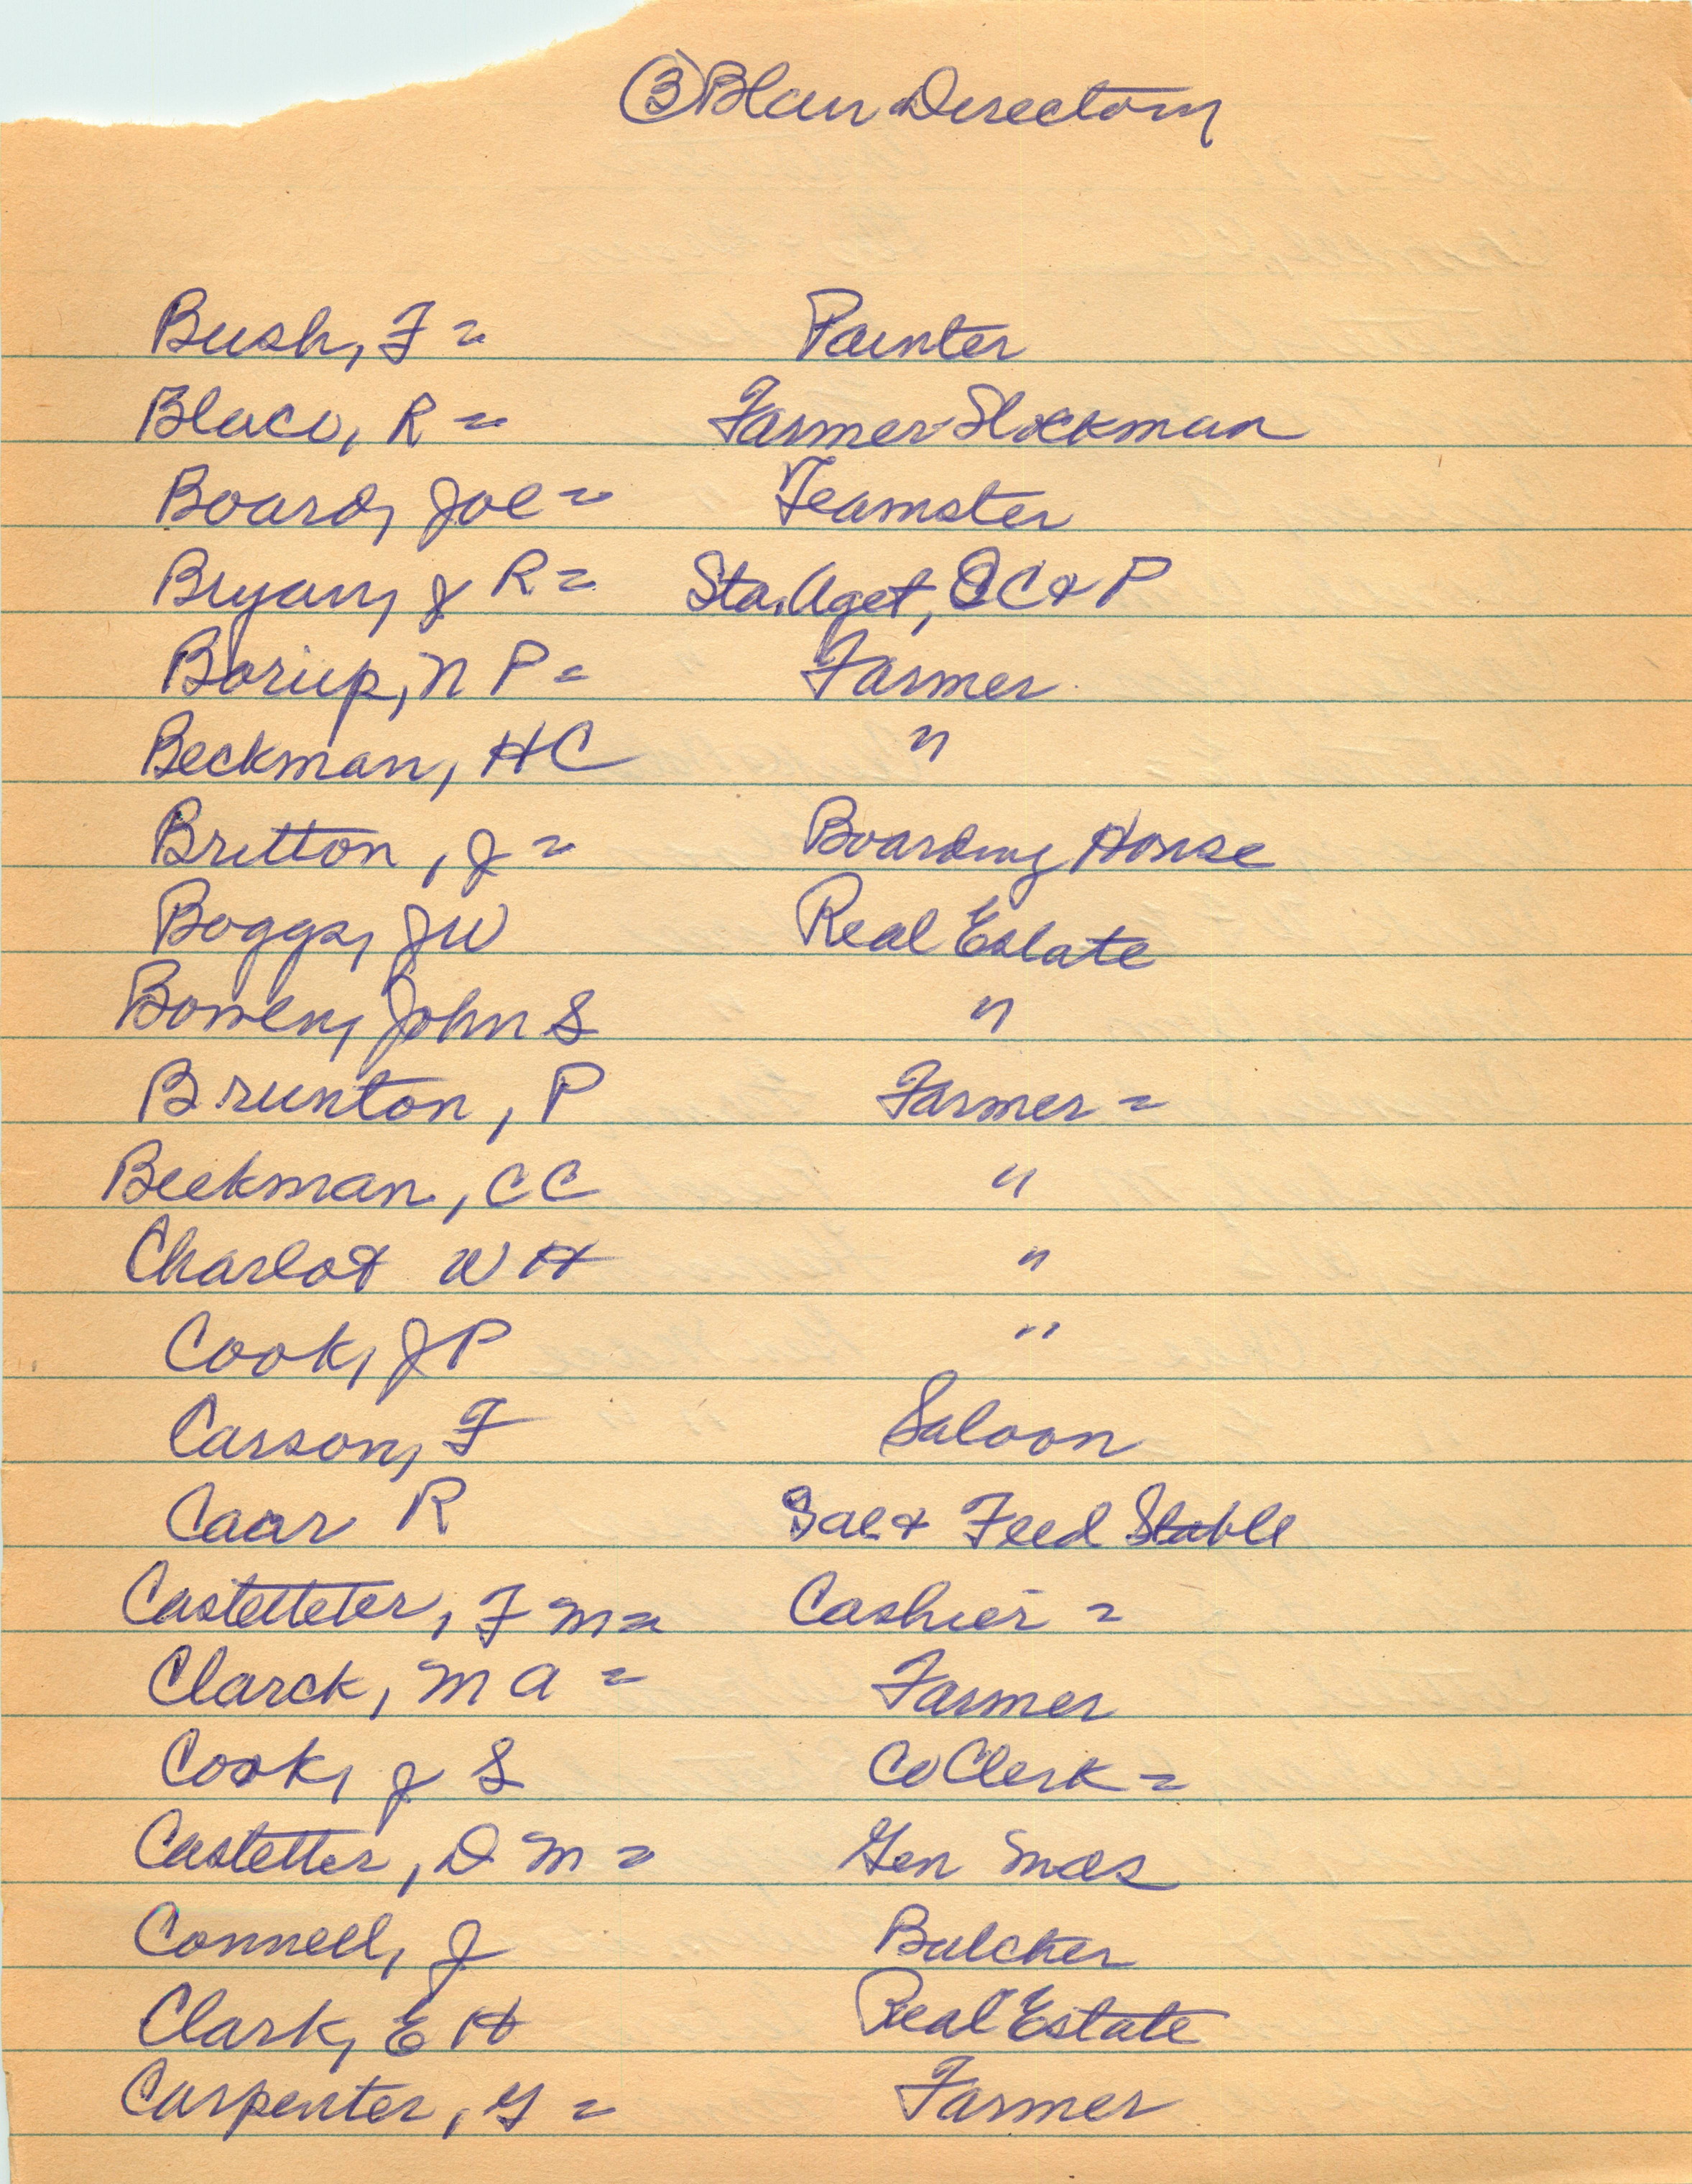 ③ Blair Directory
Bush, F = Painter
Blaco, R = Farmer-Stockman
Board, Joe = Teamster
Bryan, J R = Sta. Aget, C & P
Borup, N P = Farmer
Beckman, H C "
Britton, J = Boarding House
Boggs, J W Real Estate
Bowen, John S "
Brunton, P Farmer =
Beekman, C C "
Charlot W H "
Cook, J P "
Carson, F Saloon
Caar R Sal & Feed Stable
Castetteter, F M = Cashier =
Clarck, M A = Farmer
Cook, J S Co Clerk =
Castetter, D M = Gen Mds
Connell, J Butcher
Clark, E H Real Estate
Carpenter, G = Farmer